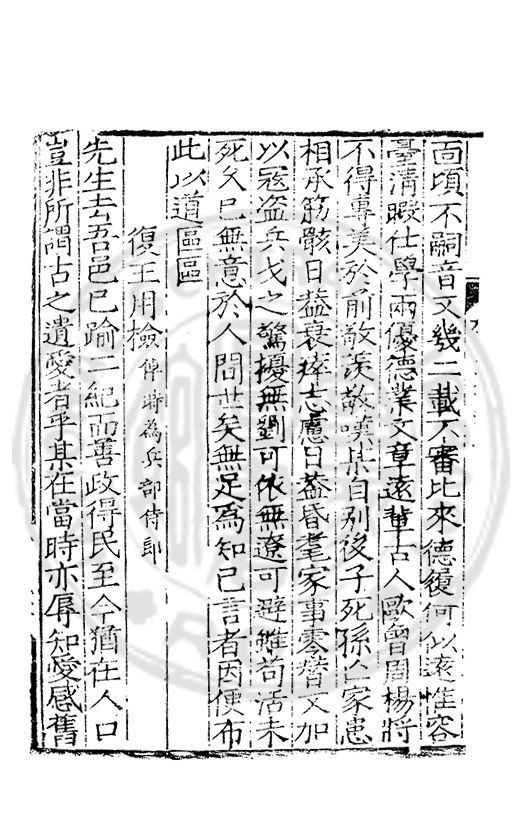 面頃不嗣音又幾二載不審比來德履何似遠惟容
臺清暇仕學兩優德業文章遠輩古人歐曾周楊將
不得專美於前敬羨敬嘆某自別後子死孫亡家患
相承筋骸日益衰瘁志慮日益昏耄家事零替又加
以寇盗兵戈之驚擾無劉可依無遼可避雖苟活未
死久已無意於人間世矣無足為知己言者因便布
此以道區區
復王用檢俾時為兵部侍郎
先生去吾邑已踰二紀而善政得民至今猶在人口
豈非所謂古之遺愛者乎某在當時亦辱知愛感舊